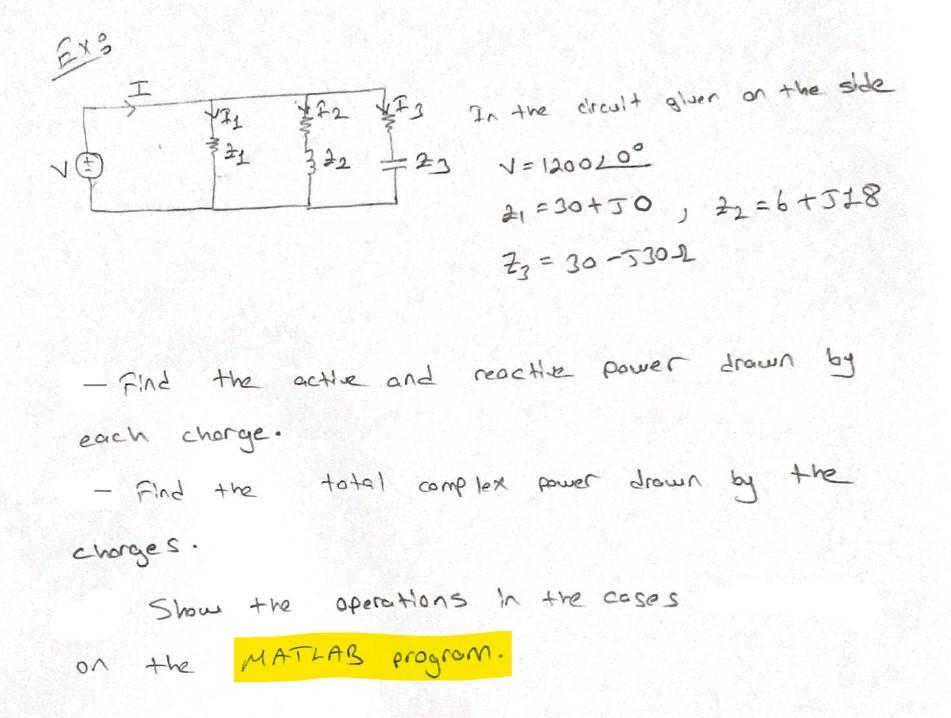 Ex:
I
I1
I2
I3
V
z1
z2
z3
In the circuit given on the side
V = 1200∠0°
z1 = 30 + J0 , z2 = 6 + J18
Z3 = 30 - J30Ω
- Find the active and reactive power drawn by
each charge.
- Find the total complex power drawn by the
charges.
Show the operations in the cases
on the MATLAB program.